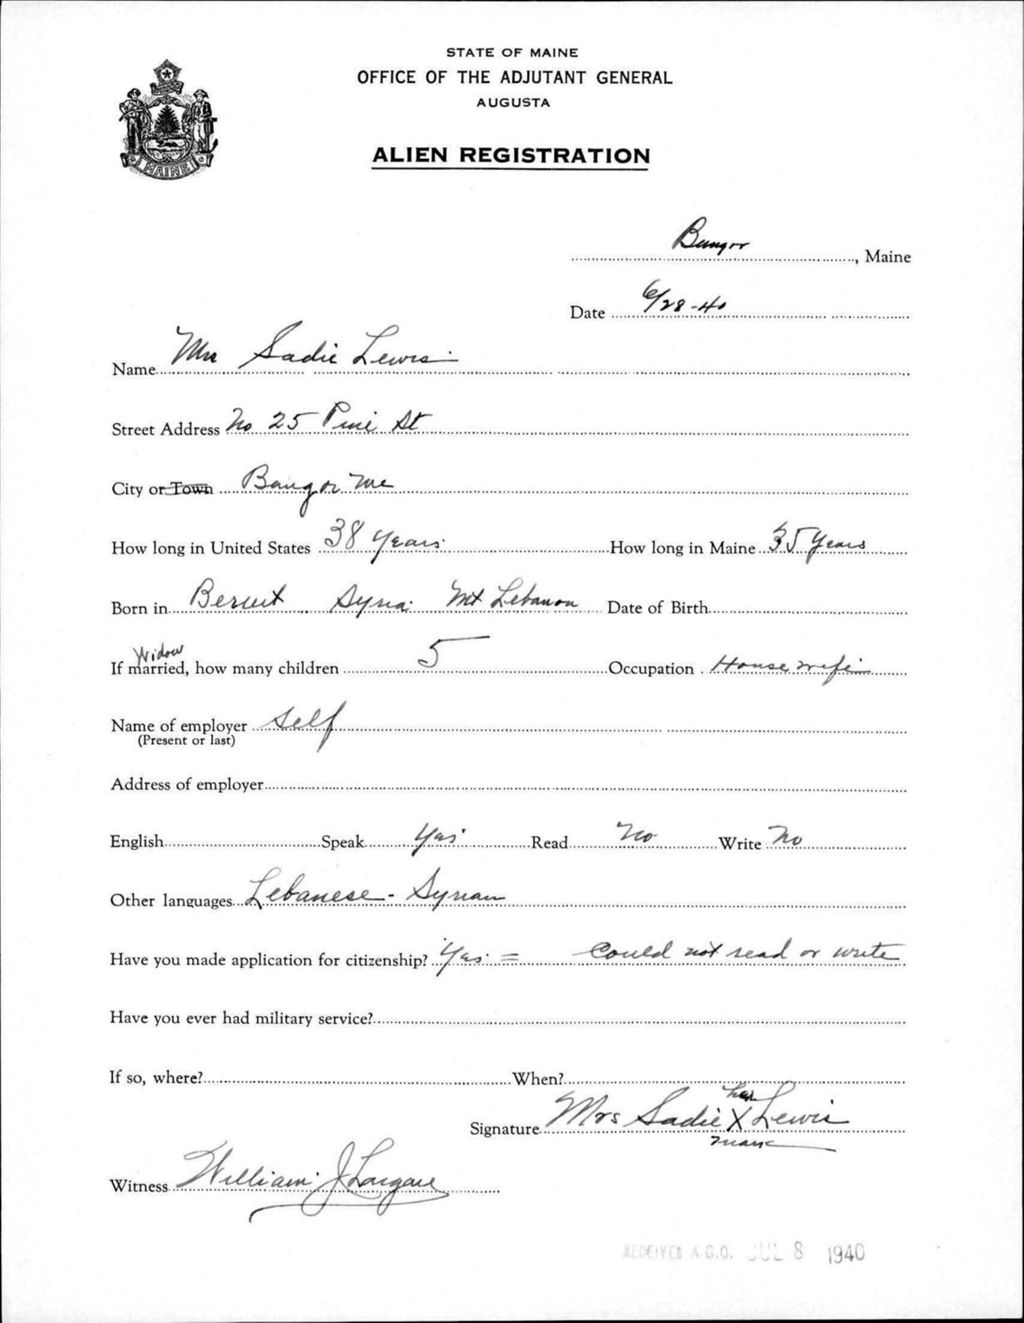 STATE OF MAINE
OFFICE OF THE ADJUTANT GENERAL
AUGUSTA
MAINE
ALIEN REGISTRATION
Bangor, Maine
Date 6/28-40
Name Mrs Sadie Lewis
Street Address No 25 Pine St
City or Town Bangor Me
How long in United States 38 Years How long in Maine 35 Years
Born in Beruit Syria Mt Lebanon Date of Birth
Widow
If married, how many children 5 Occupation Housewife
Name of employer Self
(Present or last)
Address of employer
English Speak Yes Read No Write No
Other languages Lebanese - Syrian
Have you made application for citizenship? Yes = Could not read or write
Have you ever had military service?
If so, where? When?
her
Signature Mrs Sadie X Lewis
mark
Witness William J
RECEIVED A.G.O. JUL 8 1940